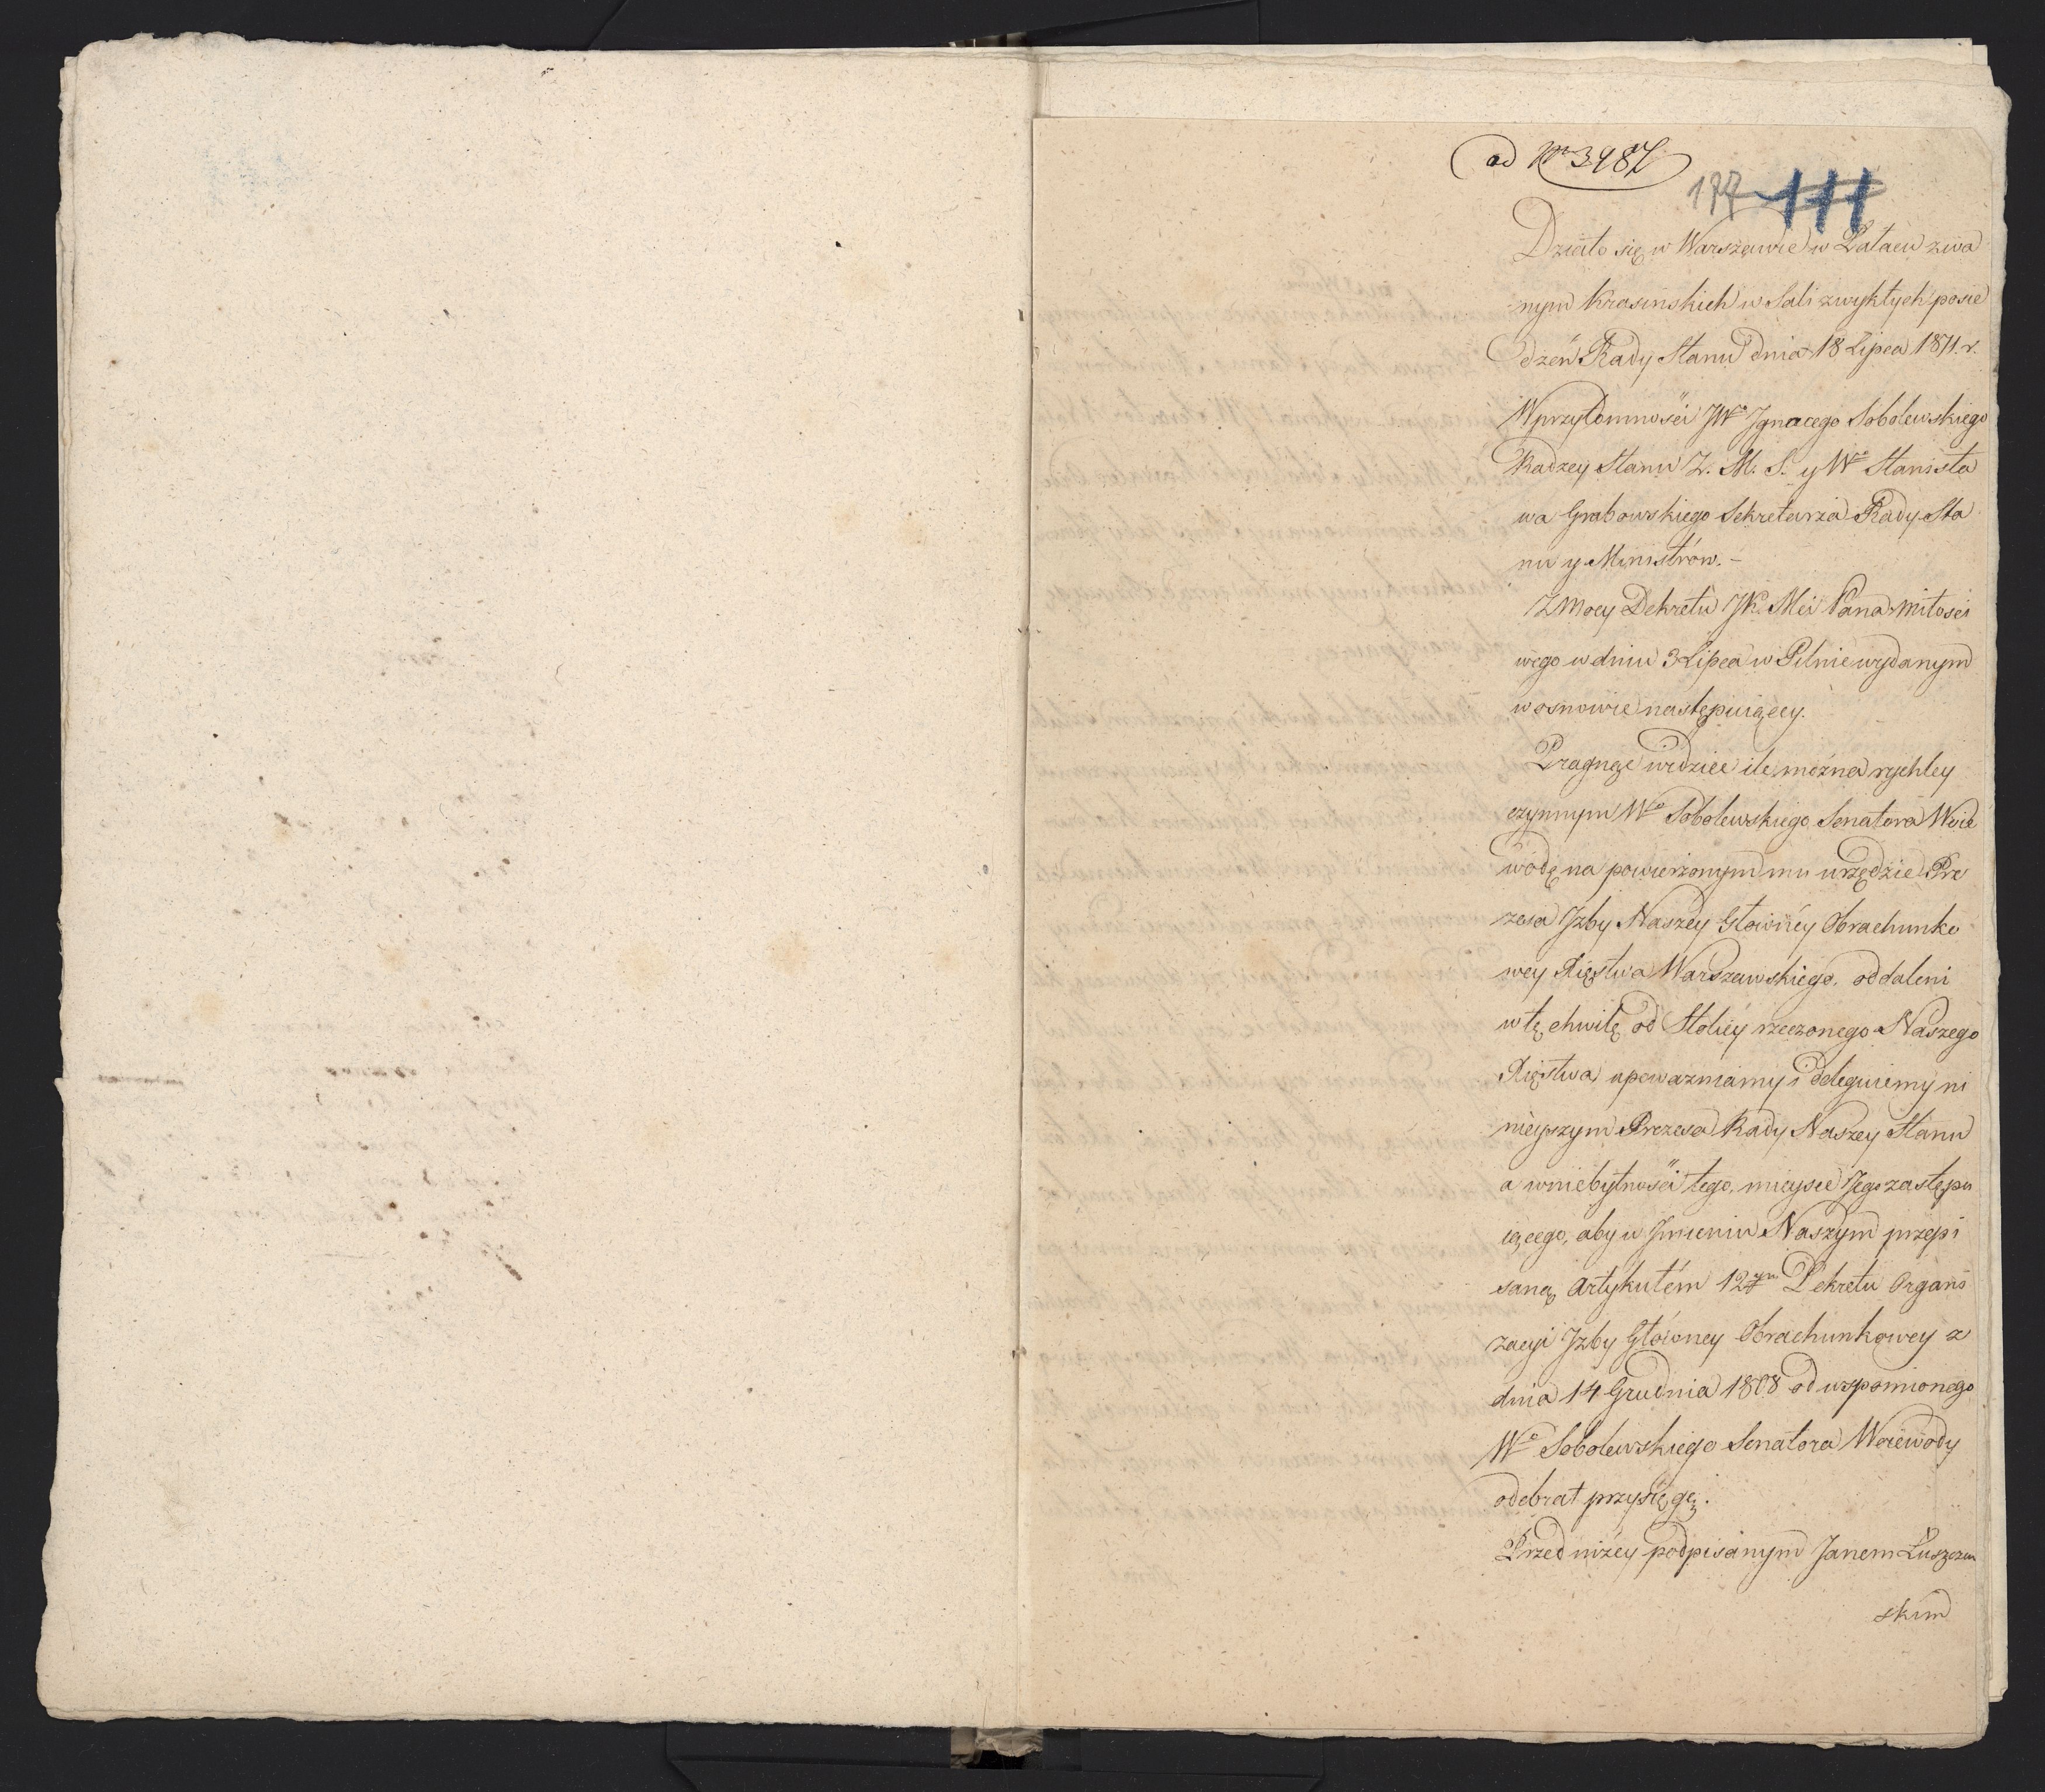 ad Nro 3987
177 111
Działo się w Warszawie w Pałacu zwa
nym Krasińskich w Sali zwykłych posie
dzeń Rady Stanu dnia 18 Lipca 1811. r.
W przytomności JWo Ignacego Sobolewskiego
Radzcy Stanu Z. M. S. y Wo Stanisła
wa Grabowskiego Sekretarza Rady Sta
nu y Ministrów. –
Z mocy Dekretu JK. Mci Pana Miłości
wego w dniu 3 Lipca w Pilnie wydanym
w osnowie następuiącey.
Pragnąc widzieć ile można rychley
czynnym Wo Sobolewskiego Senatora Woie
wodę na powierzonym mu urzędzie Pre
zesa Izby Naszey Główney Obrachunko
wey Xięstwa Warszawskiego, oddaleni
w tę chwilę od Stolicy rzeczonego Naszego
Xięstwa upoważniamy i deleguiemy ni
nieyszym Prezesa Rady Naszey Stanu
a w niebytności tego, mieysce Jego zastępu
iącego, aby w Imieniu Naszym przepi
saną Artykułem 12ym Dekretu Organi
zacyi Izby Główney Obrachunkowey z
dnia 14 Grudnia 1808 od wspomionego
Wo Sobolewskiego Senatora Woiewody
odebrał przysięgę.
Przed niżey podpisanym Janem Łuszczew
skim